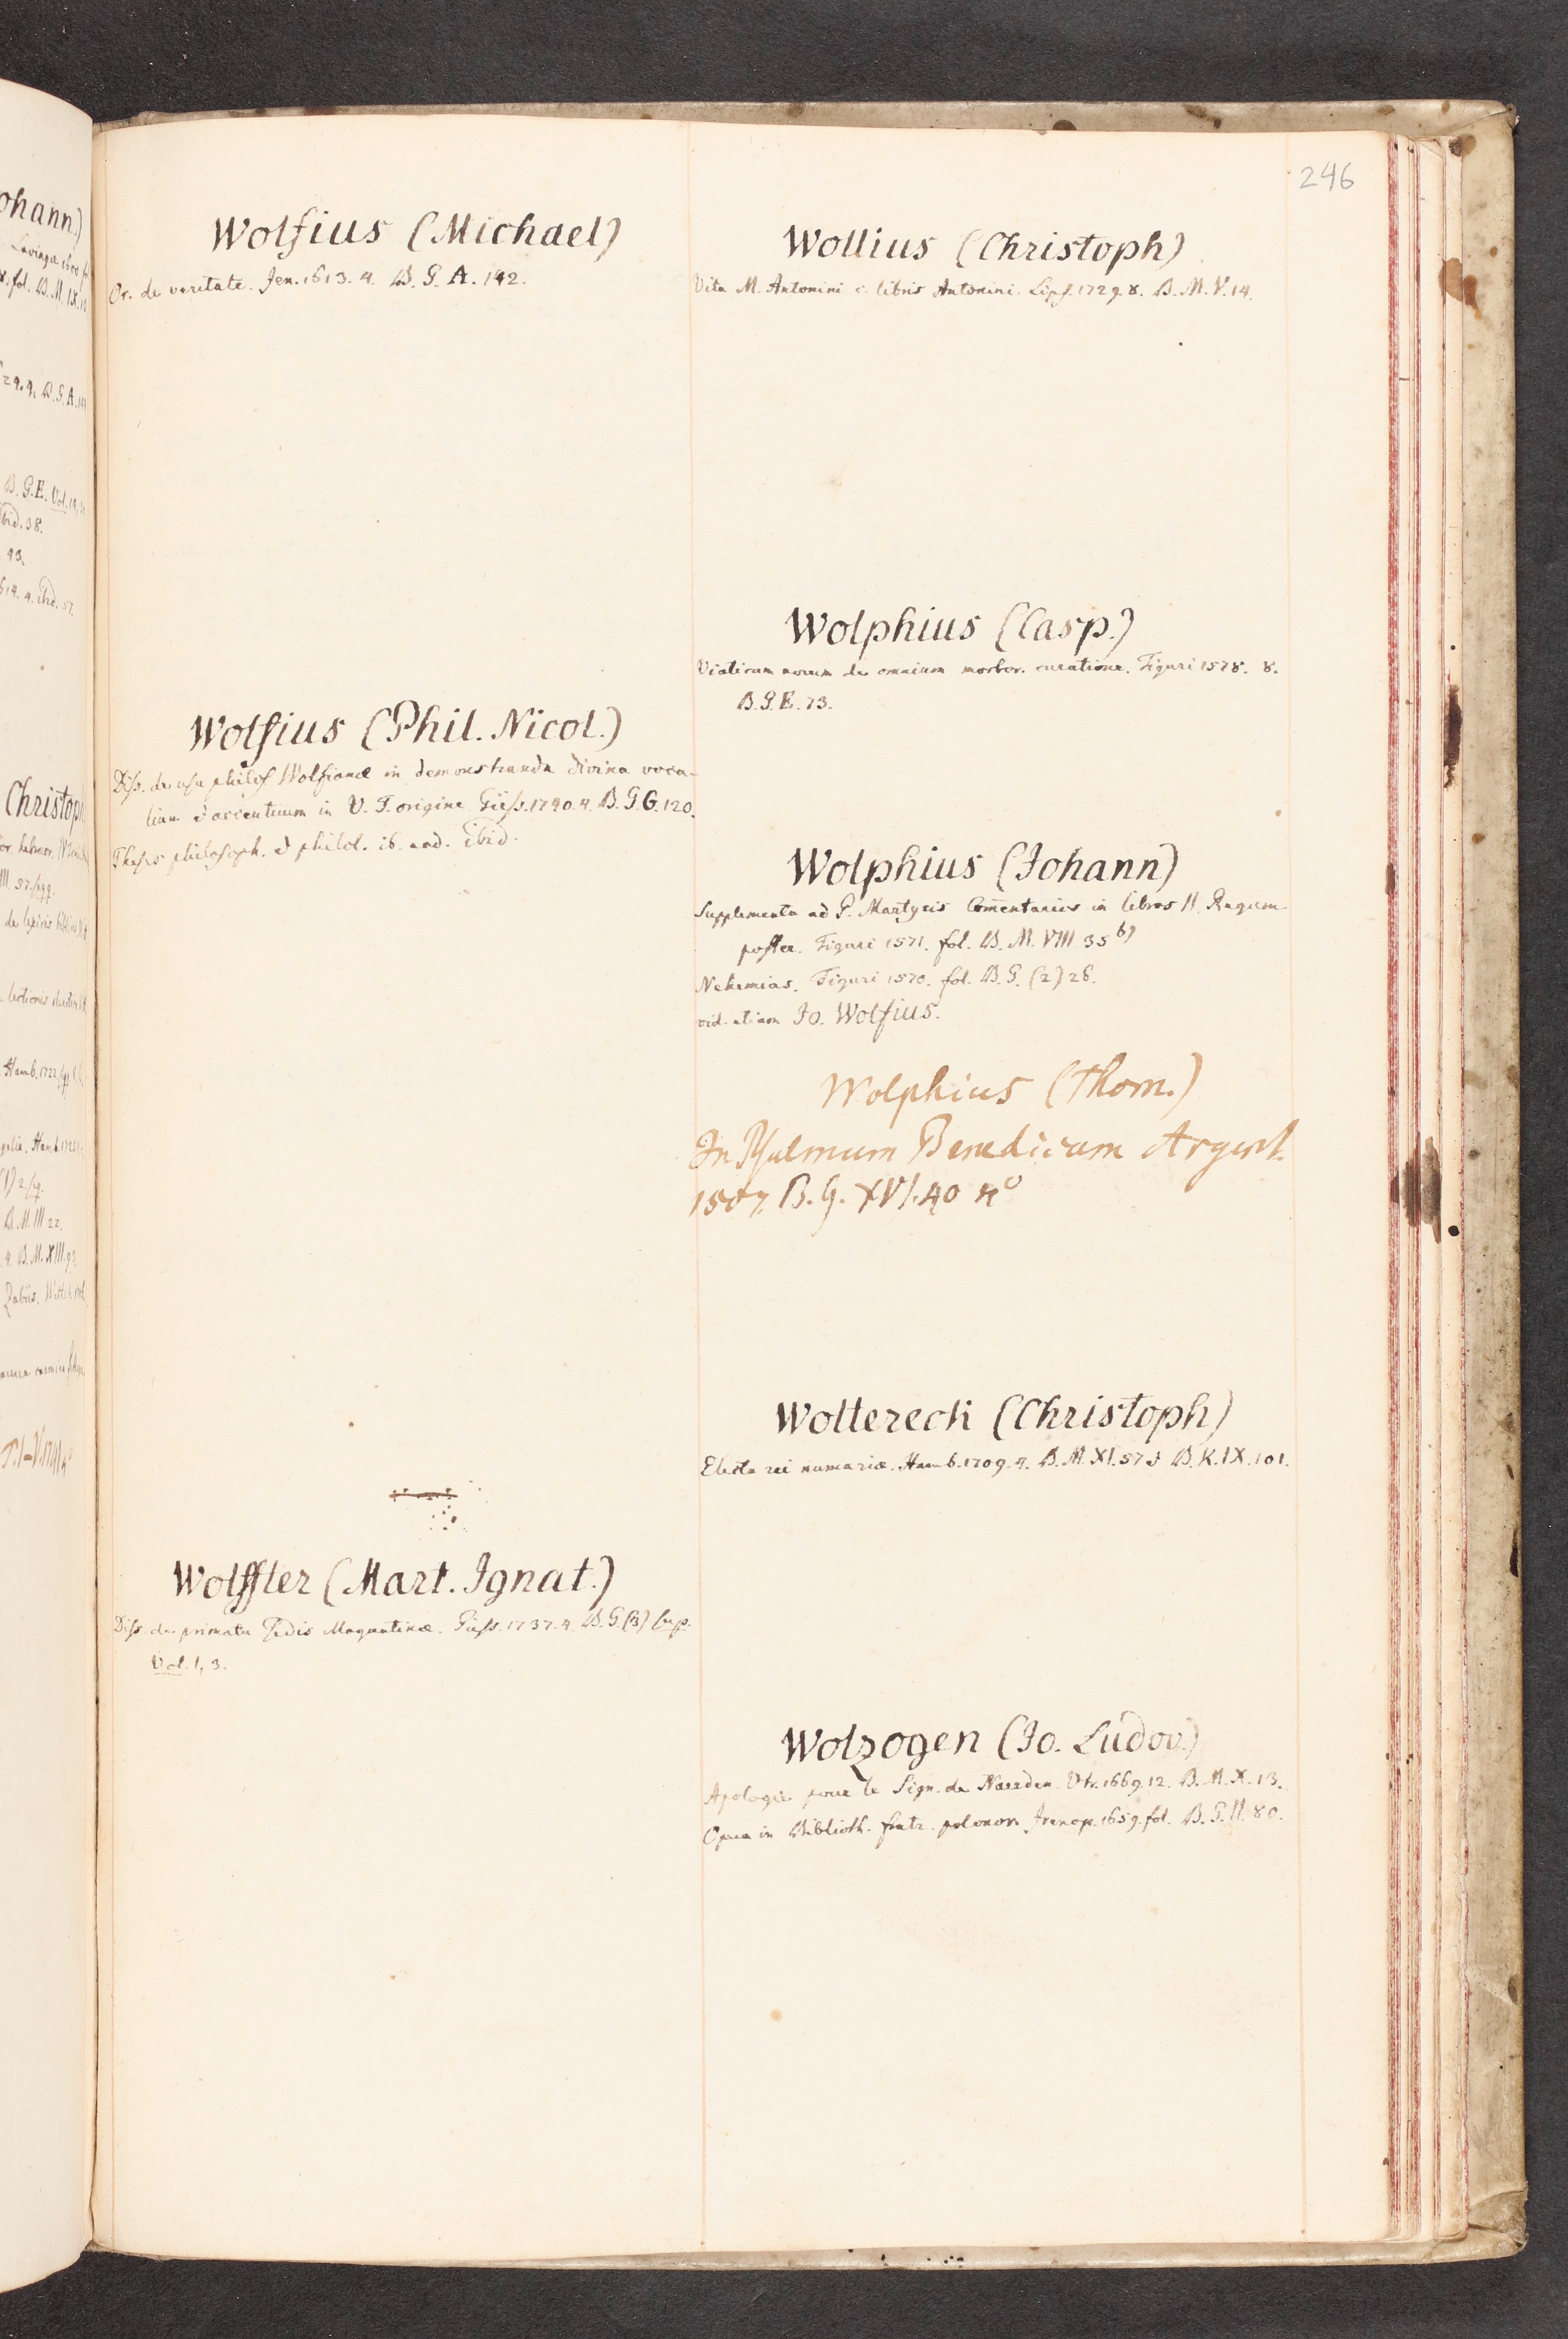 246
Wolfius (Michael)
Or. de veritate. Jen. 1613. 4. B. G. A. 142.
Wolfius (Phil. Nicol.)
Diss. de usu philos Wolfianæ in demonstranda divina voca-
lium & accentuum in V. T. origine Giess. 1740. 4. B. G. G. 120.
Theses philosoph. & philol. ib. eod. Ibid.
Wolffter (Mart. Ignat.)
Diss. de primatu Sedis Moguntinæ. Giess. 1737. 4. B. G. (3) sup.
Vol. 1, 3.
Wollius (Christoph)
Vita M. Antonini c. libris Antonini. Lips. 1729. 8. B. M. V. 14.
Wolphius (Casp.)
Viaticum novum de omnium morbor. curatione. Tiguri 1578. 8.
B. G. E. 73.
Wolphius (Johann)
Supplementa ad P. Martyris Com̄entarios in libros II. Regum
poster. Tiguri 1571. fol. B. M. VIII 35 b)
Nehemias. Tiguri 1570. fol. B. G. (2) 26.
vid. etiam Jo. Wolfius.
Wolphius (Thom.)
In Psalmum Benedicam Argent.
1507. B. G. XVI. 40 n°
Woltereck (Christoph)
Electa rei numariæ. Hamb. 1709. 4. B. M. XI. 57 & B. K. IX. 101.
Wolzogen (Jo. Ludov.)
Apologie pour le Sign. de Naerden. Utr. 1669. 12. B. M. X. 13.
Opera in Biblioth. fratr. polonor. Irenop. 1659. fol. B. G. II. 80.